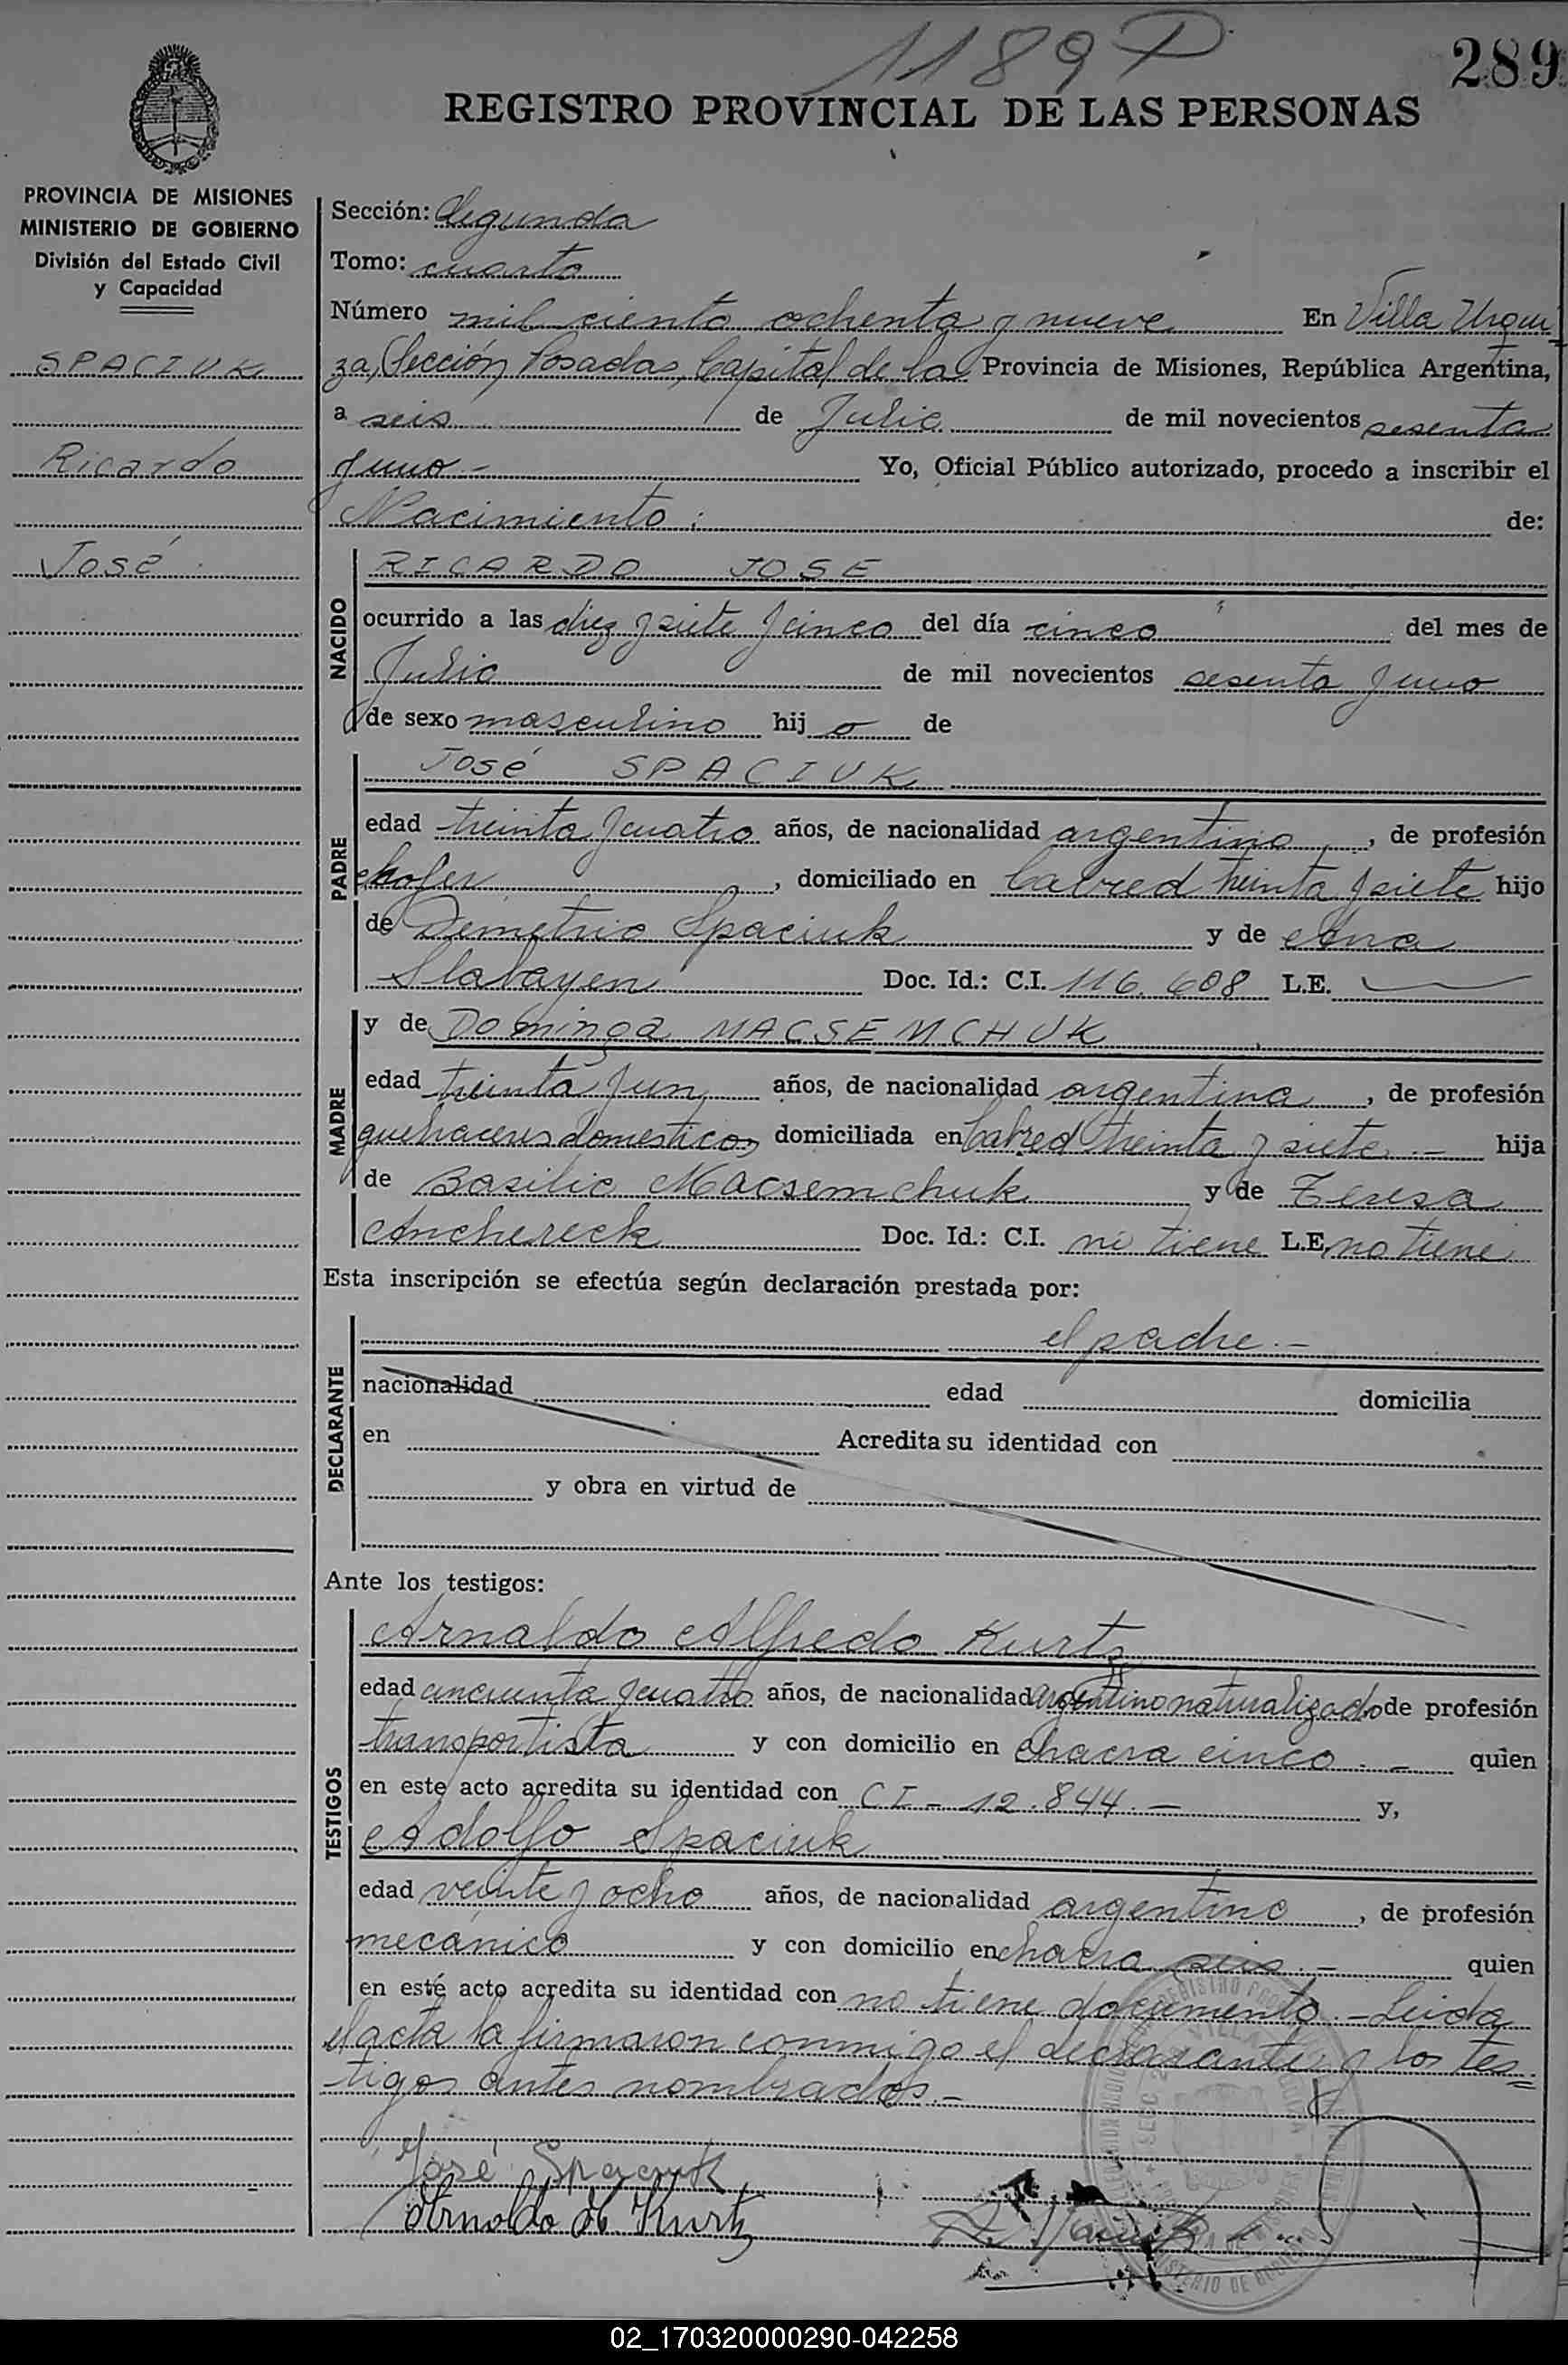 1189 P
289
REGISTRO PROVINCIAL DE LAS PERSONAS
PROVINCIA DE MISIONES
MINISTERIO DE GOBIERNO
División del Estado Civil
y Capacidad
SPACIUK
Ricardo
José
Sección: Segunda
Tomo: cuarto
Número mil ciento ochenta y nueve En Villa Urqui
za, Sección Posadas, Capital de la Provincia de Misiones, República Argentina,
a seis de Julio de mil novecientos sesenta
y uno.- Yo, Oficial Público autorizado, procedo a inscribir el
Nacimiento: de:
NACIDO
RICARDO JOSE
ocurrido a las diez y siete y cinco del día cinco del mes de
Julio de mil novecientos sesenta y uno
de sexo masculino hijo de
PADRE
José SPACIUK
edad treinta y cuatro años, de nacionalidad argentino, de profesión
chofer, domiciliado en Cabred treinta y siete hijo
de Demetrio Spaciuk y de Ana
Slabayen Doc. Id.: C.I. 116.608 L.E.
MADRE
y de Dominga MACSEMCHUK
edad treinta y un años, de nacionalidad argentina, de profesión
quehaceres domesticos domiciliada en Cabred treinta y siete.- hija
de Basilio Macsemchuk y de Teresa
Anchereck Doc. Id.: C.I. no tiene L.E. no tiene
Esta inscripción se efectúa según declaración prestada por:
DECLARANTE
el padre.-
nacionalidad edad domicilia
en Acredita su identidad con
y obra en virtud de
Ante los testigos:
TESTIGOS
Arnaldo Alfredo Kurtz
edad cincuenta y cuatro años, de nacionalidad argentino naturalizado de profesión
transportista y con domicilio en chacra cinco.- quien
en este acto acredita su identidad con CI - 12.844.- y,
Adolfo Spaciuk
edad veinte y ocho años, de nacionalidad argentino, de profesión
mecánico y con domicilio en chacra seis.- quien
en este acto acredita su identidad con no tiene documento.- Leida
el acta la firmaron conmigo el declarante y los tes=
tigos antes nombrados.-
José Spaciuk
Arnoldo A Kurtz
02_170320000290-042258